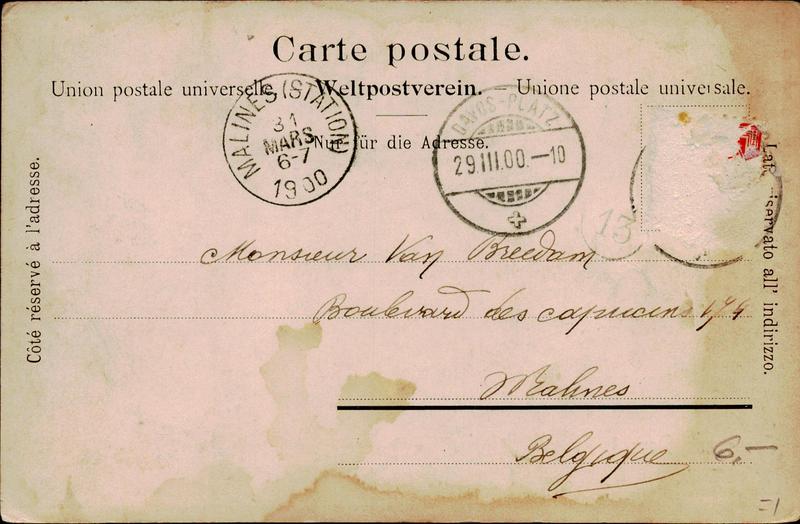 Carte postale.
Union postale universelle. — Weltpostverein. — Unione postale universale.
MALINES (STATION)
31
MARS
6-7
1900
DAVOS-PLATZ
29.III.00.—10
Nur für die Adresse.
Côté réservé à l'adresse.
Lato riservato all' indirizzo.
13
Monsieur Van Breedam
Boulevard des capucins
Malines
Belgique
6,—